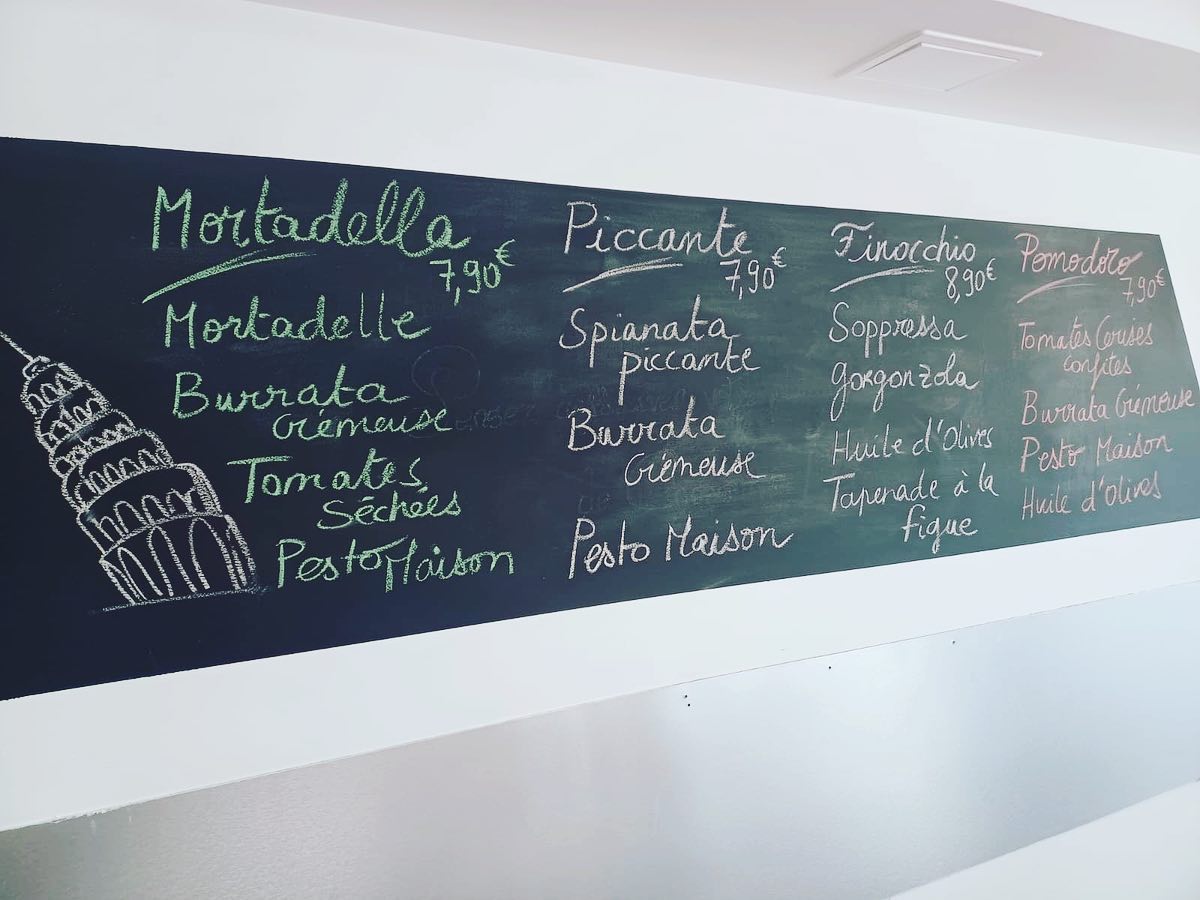 Mortadella
7,90€
Mortadelle
Burrata
Crémeuse
Tomates
Séchées
Pesto Maison
Piccante
7,90€
Spianata
piccante
Burrata
Crémeuse
Pesto Maison
Finocchio
8,90€
Soppressa
gorgonzola
Huile d'Olives
Tapenade à la
figue
Pomodoro
7,90€
Tomates Cerises
confites
Burrata Crémeuse
Pesto Maison
Huile d'Olives